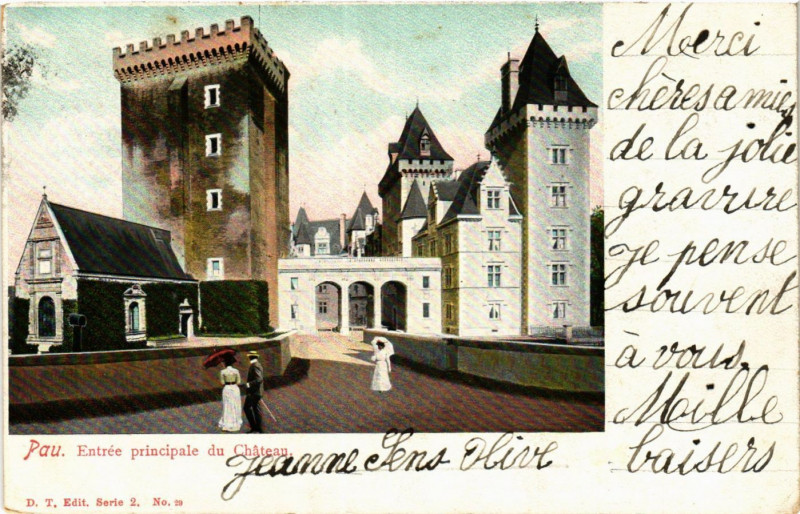 Merci
chères amies
de la jolie
gravure
je pense
souvent
à vous
Mille
baisers
Pau. Entrée principale du Château.
Jeanne Sens Olive
D. T. Edit. Serie 2. No. 29